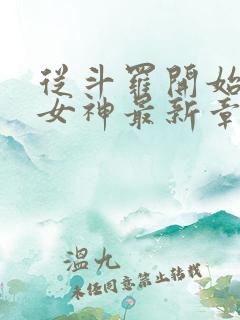 從斗羅開始
女神最新章
溫九
未經同意禁止轉載